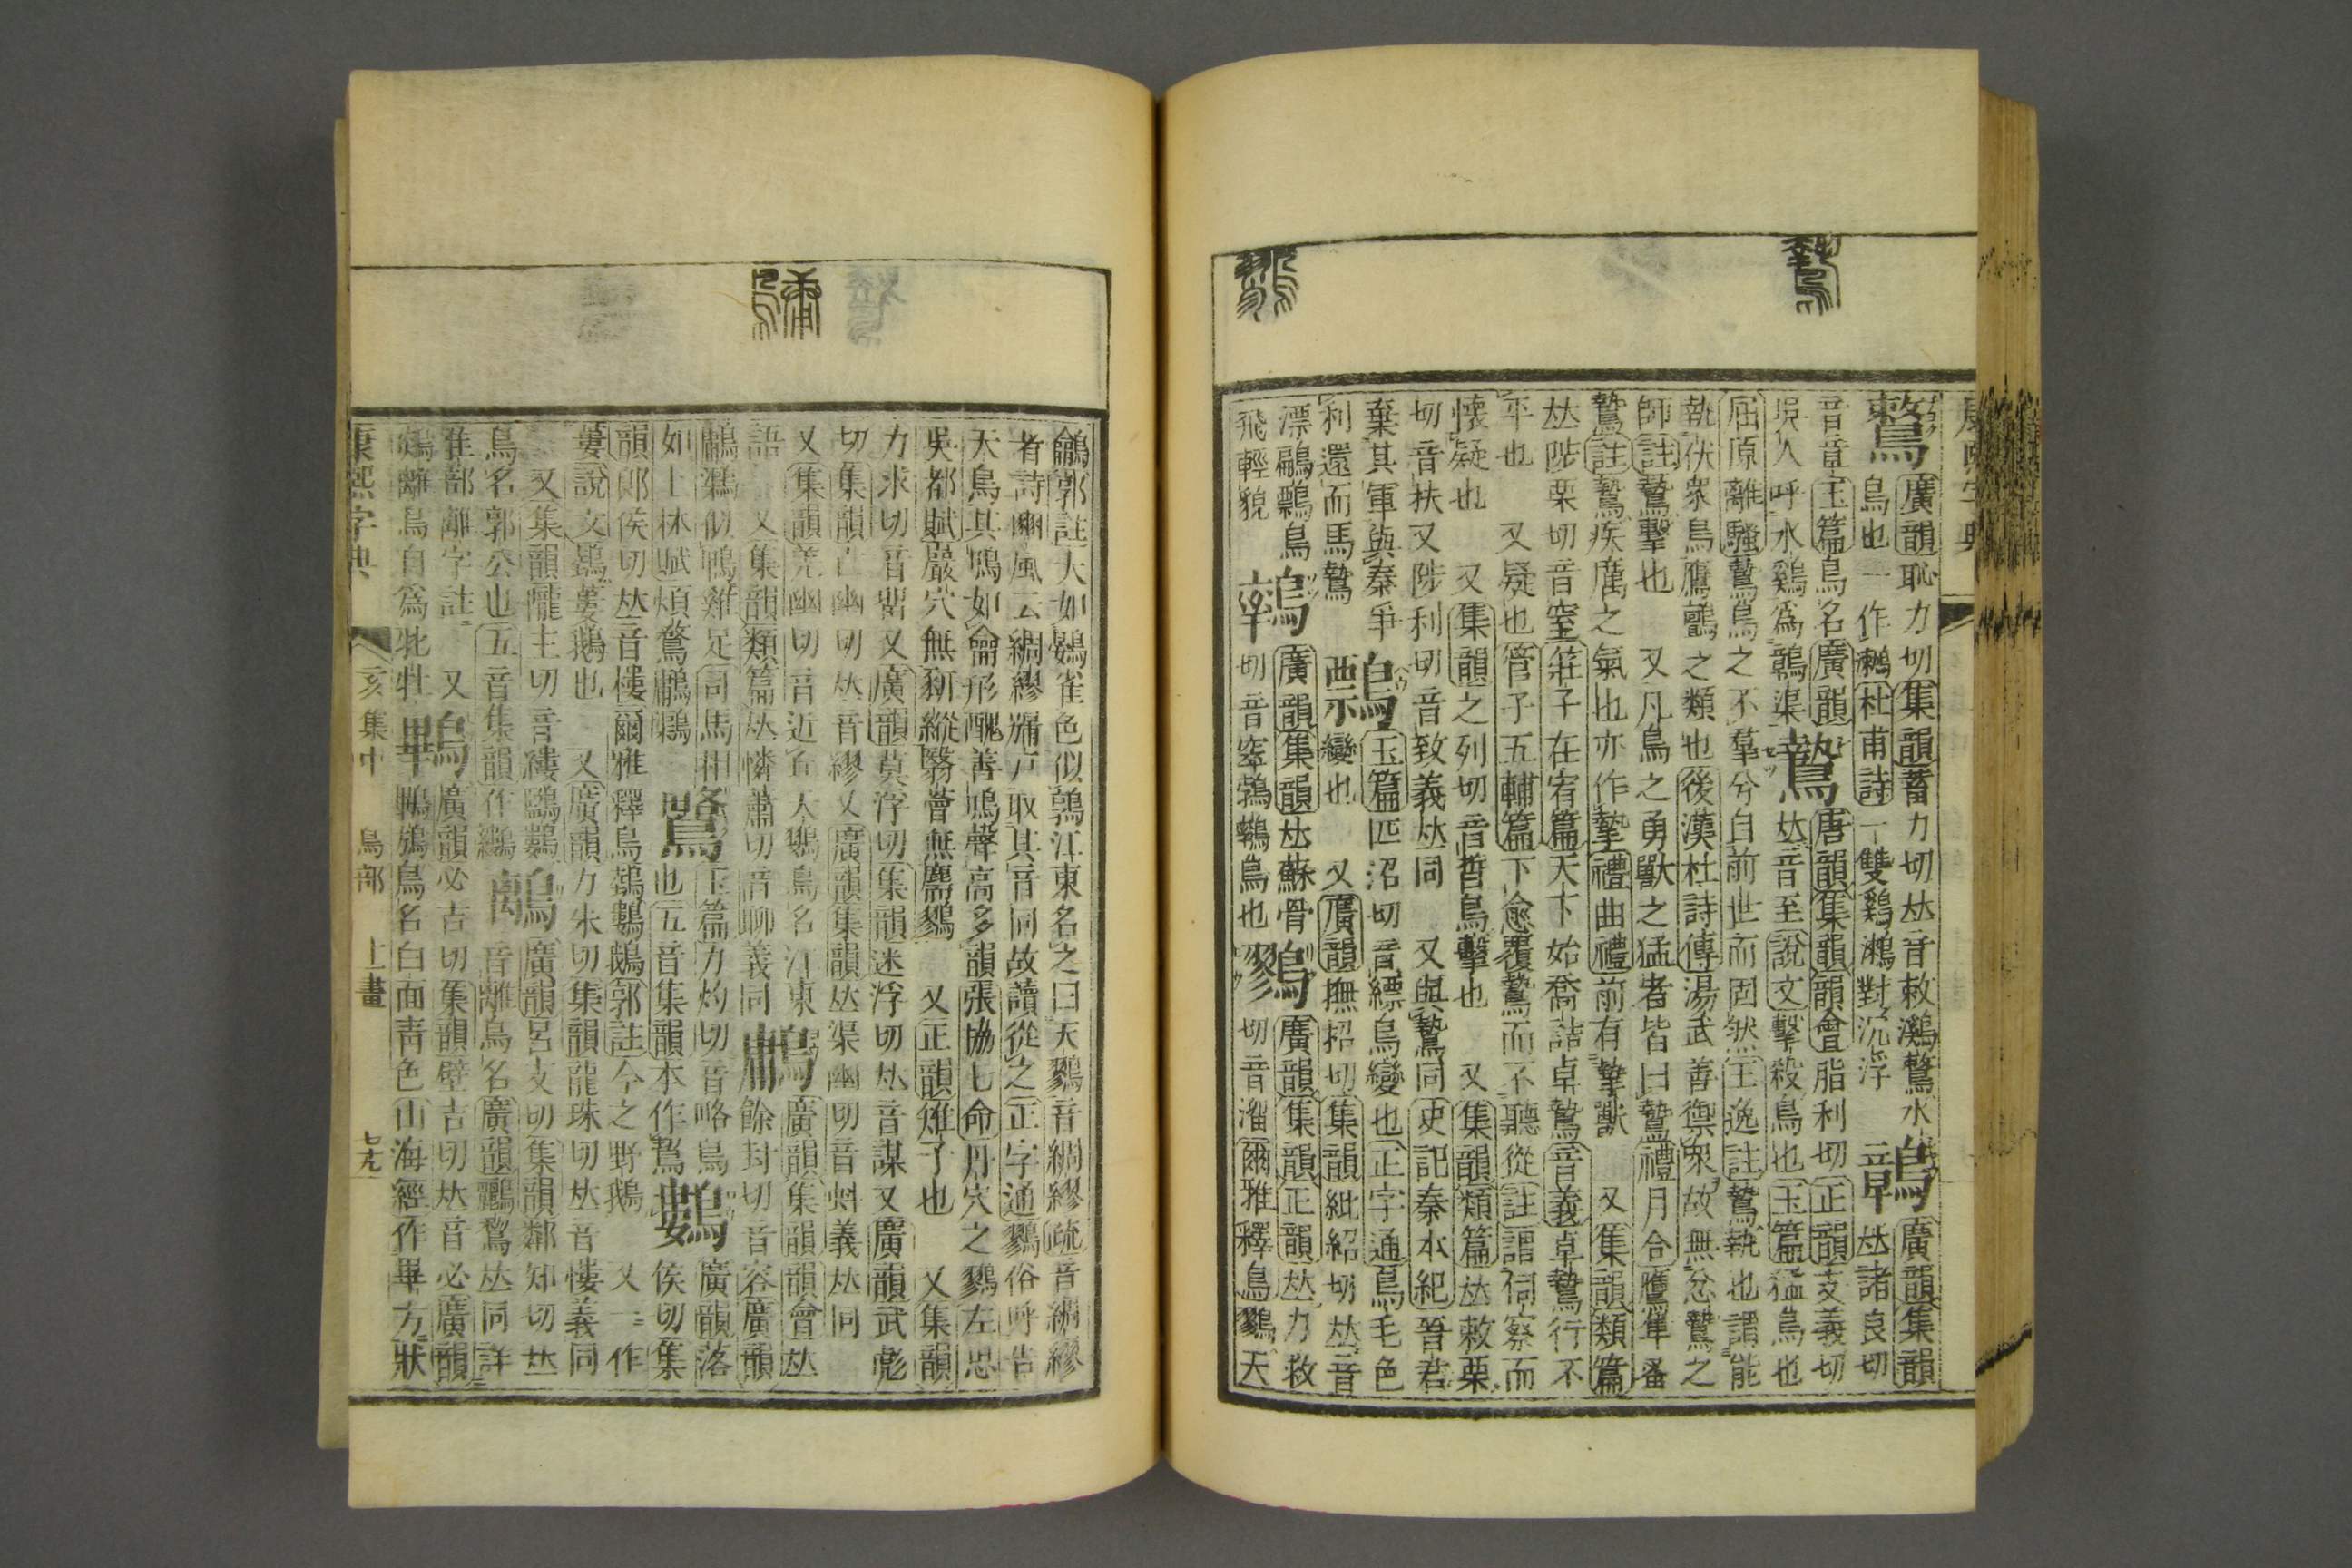 鷘
廣韻恥力切集韻蓄力切𠀤音敕鸂鷘水
鳥也一作鶒杜甫詩一雙鸂鶒對沉浮
鷾
廣韻集韻
𠀤諸良切
音章玉篇鳥名廣韻
吳人呼水鷄爲鷾渠
鷙
唐韻集韻韻會脂利切正韻支義切
𠀤音至說文擊殺鳥也玉篇猛鳥也
屈原離騷鷙鳥之不羣兮自前世而固然王逸註鷙執也謂能
執伏衆鳥鷹鸇之類也後漢杜詩傳湯武善御衆故無忿鷙之
師註鷙擊也 又凡鳥之勇獸之猛者皆曰鷙禮月令鷹隼蚤
鷙註鷙疾厲之氣也亦作摯禮曲禮前有摯獸 又集韻類篇
𠀤陟栗切音窒莊子在宥篇天下始喬詰卓鷙音義卓鷙行不
平也 又疑也管子五輔篇下愈覆鷙而不聽從註謂伺察而
懷疑也 又集韻之列切音晢鳥擊也 又集韻類篇𠀤敕栗
切音抶又陟利切音致義𠀤同 又與驇同史記秦本紀晉君
棄其軍與秦爭
利還而馬驇
鷅
玉篇匹沼切音縹鳥變也正字通鳥毛色
變也 又廣韻撫招切集韻紕紹切𠀤音
漂鸍鷅鳥
飛輕貌
廣韻集韻𠀤蘇骨
切音窣鶟鷞鳥也
鷚
廣韻集韻正韻𠀤力救
切音溜爾雅釋鳥鷚天
鸙郭註大如鷃雀色似鶉江東名之曰天鷚音綢繆疏音綢繆
者詩豳風云綢繆牖戸取其音同故讀從之正字通鷚俗呼告
天鳥其鳴如龠形醜善鳴聲高多韻張協七命丹穴之鷚左思
吳都賦巖穴無豜豵翳薈無麢鷚 又正韻雉子也 又集韻
力求切音畱又廣韻莫浮切集韻迷浮切𠀤音謀又廣韻武彪
切集韻亡幽切𠀤音繆又廣韻集韻𠀤渠幽切音虯義𠀤同
又集韻羌幽切音近丘大鷚鳥名江東
語 又集韻類篇𠀤憐蕭切音聊義同
鷛
餘封切音容廣韻
廣韻集韻韻會𠀤
鷛𪆫似鴨雞足司馬相
如上林賦煩鶩鷛𪆫
玉篇力灼切音略鳥
也五音集韻本作䳾
鷜
廣韻落
侯切集
韻郎侯切𠀤音樓爾雅釋鳥鵱鷜鵝郭註今之野鵝 又一作
蔞說文鵱蔞鵝也 又廣韻力朱切集韻龍珠切𠀤音慺義同
又集韻隴主切音縷鷗鷜
鳥名郭公也五音集韻作䍥
鷅
廣韻呂支切集韻鄰知切𠀤
音離鳥名廣韻鸝鵹𠀤同詳
隹部離字註 又
鵹離鳥自爲牝牡
鷝
廣韻必吉切集韻壁吉切𠀤音必廣韻
鷝鴋鳥名白面靑色山海經作畢方狀
康熙字典 亥集中 鳥部 十一畫 七九